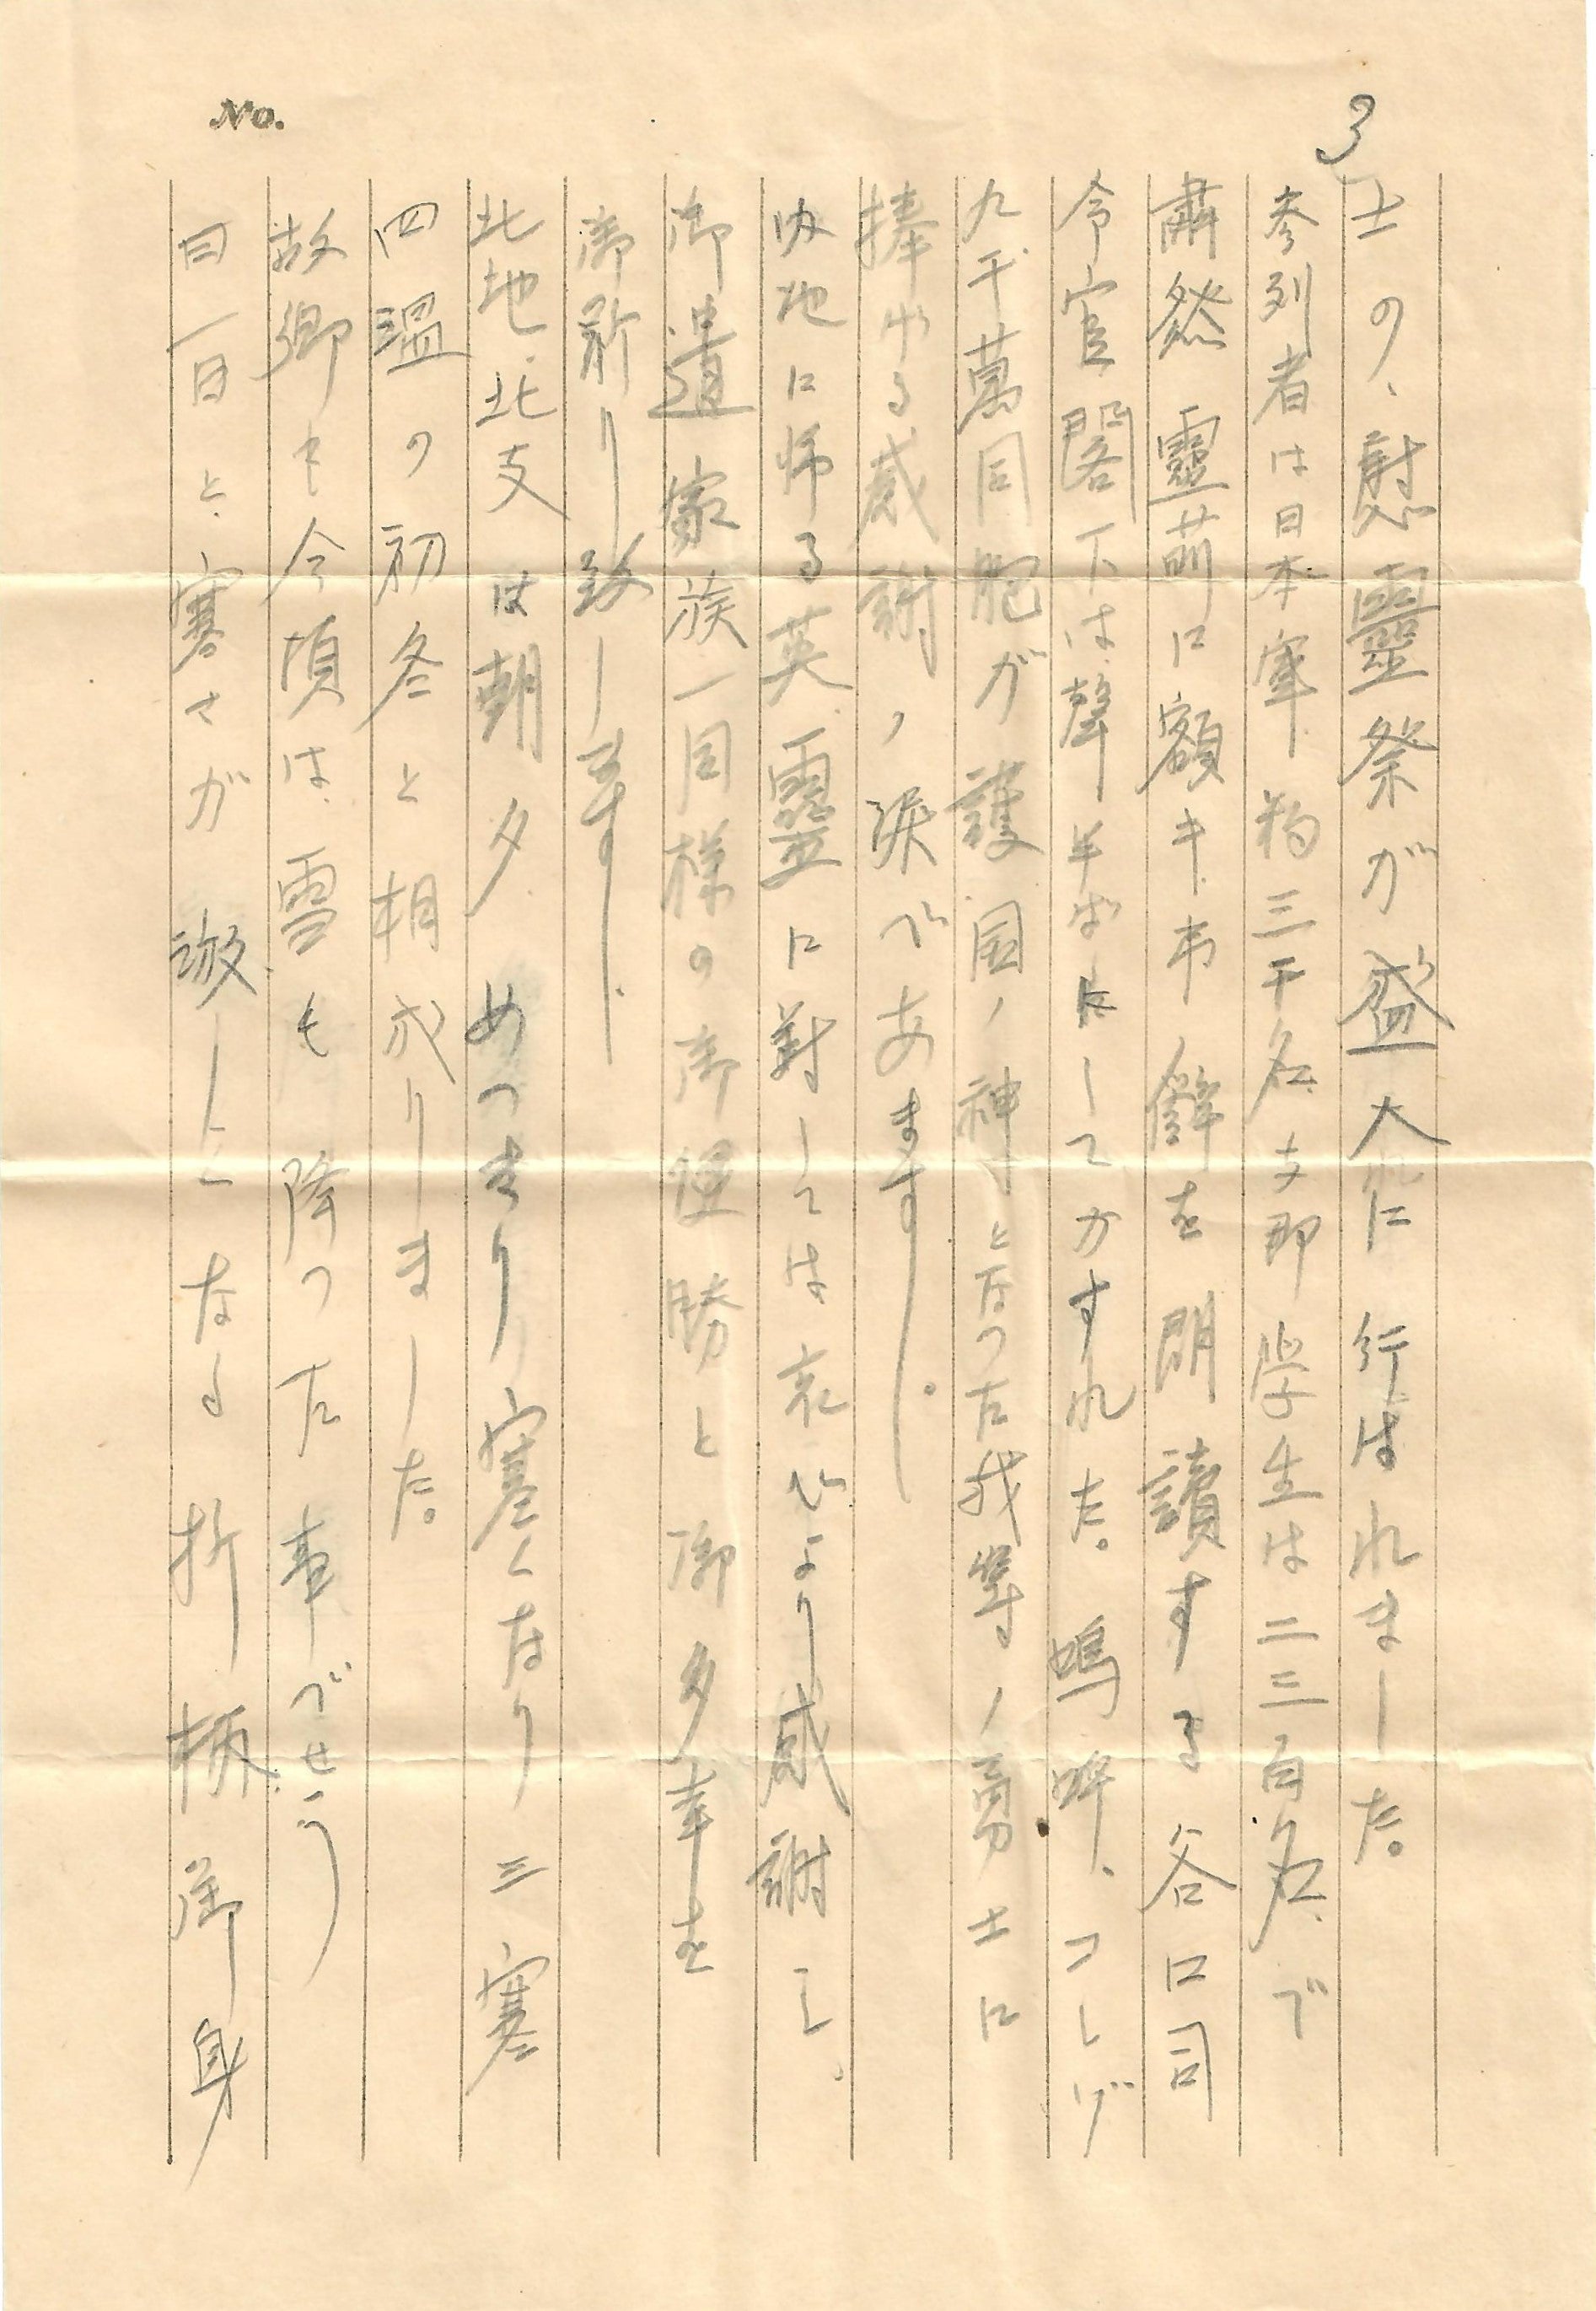 No.
3
士の、慰靈祭が盛大に行はれました。
参列者は日本軍約三千名支那学生は二三百名で
肅然靈前に額キ弔辭を朗讀する谷口司
令官閣下は聲半ばにしてかすれた。嗚呼、コレゾ
九千萬同胞が護国ノ神となつた我等ノ勇士に
捧げる感謝ノ涙であます。
内地に帰る英靈に對しては哀心より感謝し、
御遺家族一同様の御健勝と御多幸を
御祈り致します。
北地北支は朝夕めつきり寒くなり三寒
四温の初冬と相成りました。
故郷も今頃は雪も降つた事でせう
日一日と寒さが激しくなる折柄御身